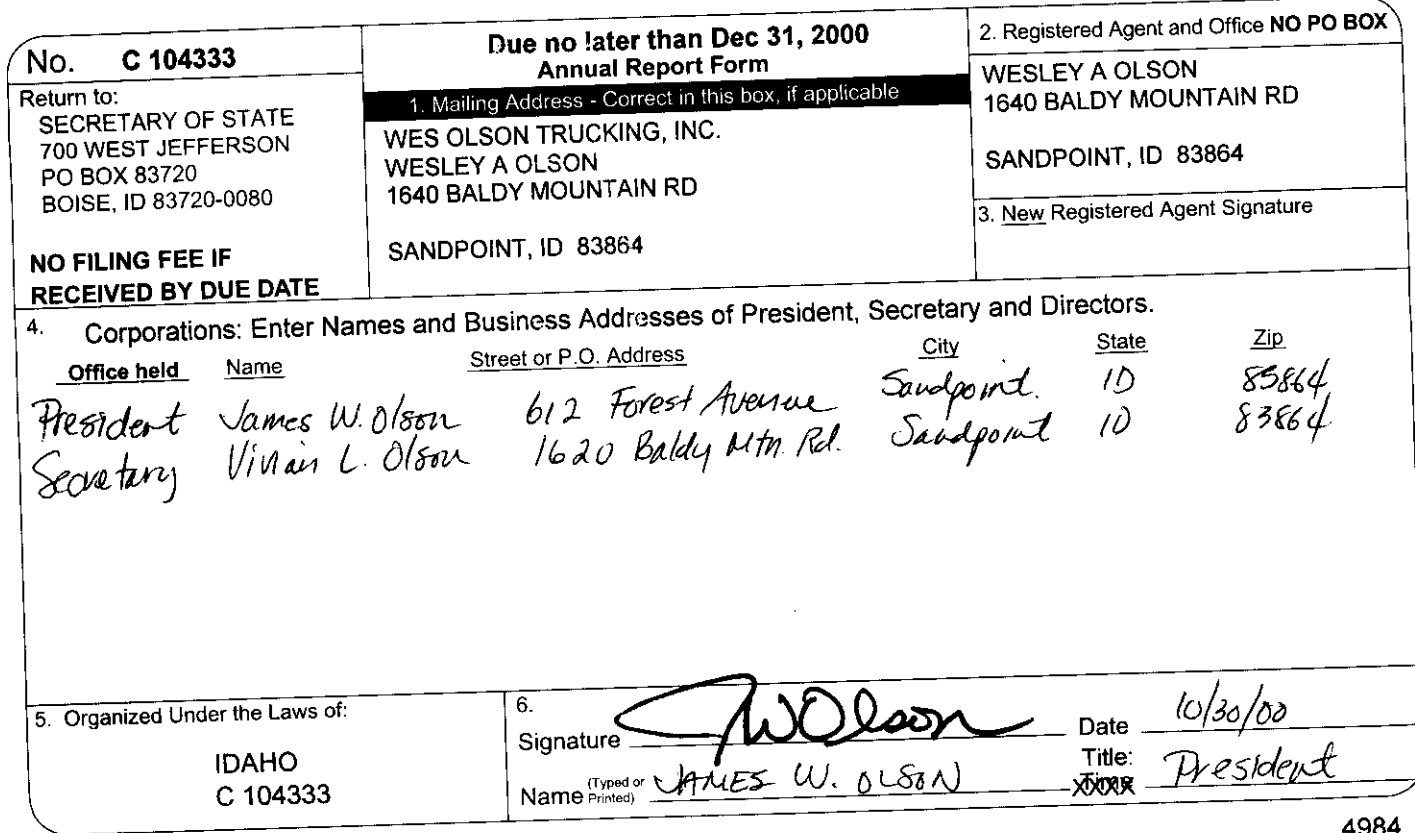 No. C 104333
Return to:
SECRETARY OF STATE
700 WEST JEFFERSON
PO BOX 83720
BOISE, ID 83720-0080
NO FILING FEE IF
RECEIVED BY DUE DATE
Due no later than Dec 31, 2000
Annual Report Form
1. Mailing Address - Correct in this box, if applicable
WES OLSON TRUCKING, INC.
WESLEY A OLSON
1640 BALDY MOUNTAIN RD
SANDPOINT, ID 83864
2. Registered Agent and Office NO PO BOX
WESLEY A OLSON
1640 BALDY MOUNTAIN RD
SANDPOINT, ID 83864
3. New Registered Agent Signature
4. Corporations: Enter Names and Business Addresses of President, Secretary and Directors.
Office held Name Street or P.O. Address City State Zip
President James W. Olson 612 Forest Avenue Sandpoint. ID 83864
Secretary Vivian L. Olson 1620 Baldy Mtn. Rd. Sandpoint ID 83864
5. Organized Under the Laws of:
IDAHO
C 104333
6.
Signature JWOlson Date 10/30/00
Name (Typed or Printed) JAMES W. OLSON Title: President
4984